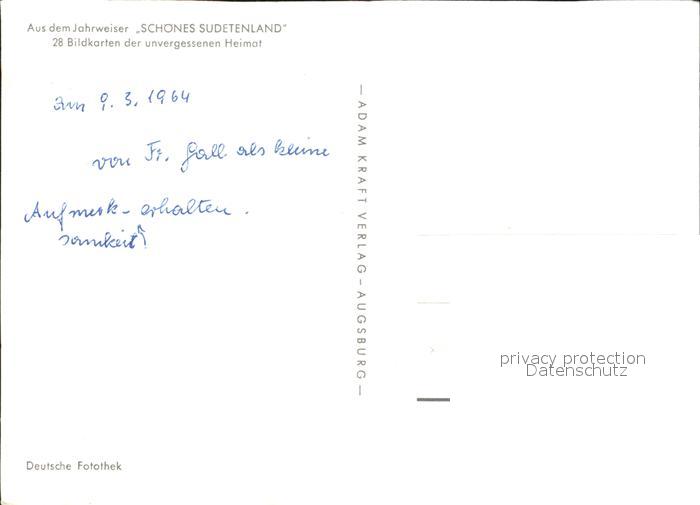 Aus dem Jahrweiser „SCHÖNES SUDETENLAND"
28 Bildkarten der unvergessenen Heimat
am 9. 3. 1964
von Fr. Gall als kleine
Aufmerk- erhalten.
samkeit
— ADAM KRAFT VERLAG — AUGSBURG —
privacy protection
Datenschutz
Deutsche Fotothek